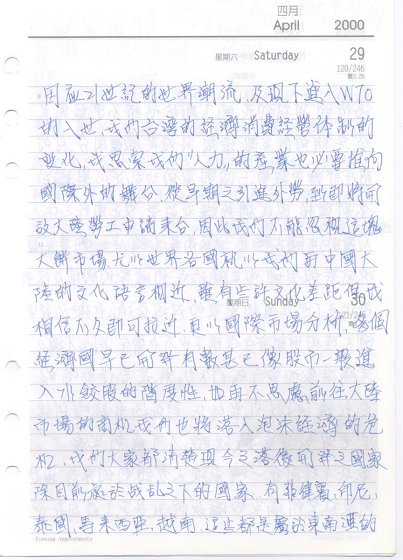 四月
April 2000
星期六 Saturday 29
120/246
因應21世記的世界潮流,及現下進入WTO
的入世,我們台灣的經濟消費經營体制的
變化,我思索我們"人力"的產業也必要推向
國際外的舞台,從早期之引進外勞,到即將開
放大陸勞工申請來台,因此我們不能忽視這塊
大餅市場,尤以世界各國就以我們與中國大
陸的文化語言相近,雖有些許文化差距但我
星期日 Sunday 30
相信不久即可拉近,且以國際市場分析,各個
經濟國早已所評有數甚已像股市一般進
入水餃股的階段性,如再不思慮前往大陸
市場的商机我們也將落入泡沫經濟的危
机,我們大家都清楚現今之落後開發之國家
除目前處於战乱之下的國家,有菲律賓,印尼,
泰國,馬來西亞,越南,這些都是屬於東南亞的
Evening Appointments